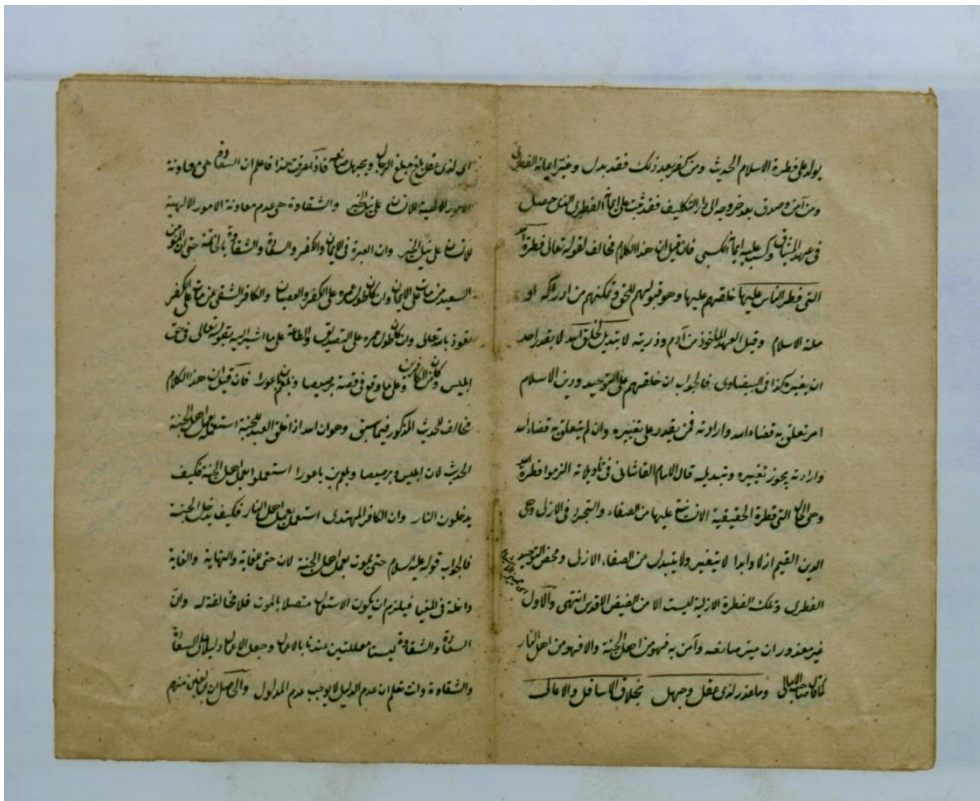 يولد على فطرة الاسلام الحديث ومن كفر بعد ذلك فقد بدل وغير ايمانه الفطري
ومن آمن وصدق بعد خروجه الى دار التكليف فقد ثبت على ايمانه الفطري الذي حصل
في عهد الميثاق وكسب عليه ايمانه الكسبي فان قيل ان هذا الكلام مخالف لقوله تعالى فطرة الله
التي فطر الناس عليها خلقهم عليها وهو قبولهم للحق وتمكنهم من ادراكه او
ملة الاسلام وقيل العهد المأخوذ من آدم وذريته لا تبديل لخلق الله لا يقدر احد
ان يغيره كذا في البيضاوي فالجواب ان خلقهم على التوحيد ودين الاسلام
امر تعلق به قضاء الله وارادته فمن يقدر على تغييره وان لم يتعلق به قضاء الله
وارادته يجوز تغييره وتبديله قال الامام القاشاني في تأويلاته الزموا فطرة الله
وهي الحالة التي فطرة الحقيقية الانسانية عليها من الصفاء والتجرد في الازل وهي
الدين القيم ازلا وابدا لا يتغير ولا يتبدل عن الصفاء الازلي ومحض التوحيد
الفطري وتلك الفطرة الازلية ليست الا من الفيض الاقدس انتهى والاول
غير معذور ان ميز صانعه وآمن به فهو من اهل الجنة والا فهو من اهل النار
كما قال صاحب الامالي وما عذر لذي عقل وجهل بخلاق الاسافل والاعالي
اي لذي عقل بلغ مبلغ الرجال وجهل صانعه فاذا عرفت هذا فاعلم ان السعادة هي معاونة
الامور الالهية للانسان على نيل الخير والشقاوة هي عدم معاونة الامور الالهية
للانسان على نيل الخير وان العبرة في الايمان والكفر والسعادة والشقاوة بالخاتمة حتى ان المؤمن
السعيد من مات على الايمان وان كان طول عمره على الكفر والعصيان والكافر الشقي من مات على الكفر
نعوذ بالله تعالى وان كان طول عمره على التصديق والطاعة على ما اشير اليه بقوله تعالى في حق
ابليس وكان من الكافرين وعلى ما وقع في قصة برصيصا وبلعم باعورا فان قيل ان هذا الكلام
مخالف للحديث المذكور فيما سبق وهو ان الله اذا خلق العبد للجنة استعمله بعمل اهل الجنة
الحديث لان ابليس وبرصيصا وبلعم بن باعورا استعملوا بعمل اهل الجنة فكيف
يدخلون النار وان الكافر المهتدي استعمل بعمل اهل النار فكيف يدخل الجنة
فالجواب قوله عليه السلام حتى يموت بعمل اهل الجنة لان حتى للغاية والنهاية والغاية
داخلة في المغيا فيلزم ان يكون الاستعمال متصلا بالموت فلا مخالفة له وان
السعادة والشقاوة ليستا معللتين عندنا بالاعمال وجعل الاعمال دليلا على السعادة
والشقاوة وانت تعلم ان عدم الدليل لا يوجب عدم المدلول والحاصل ان البعض منهم